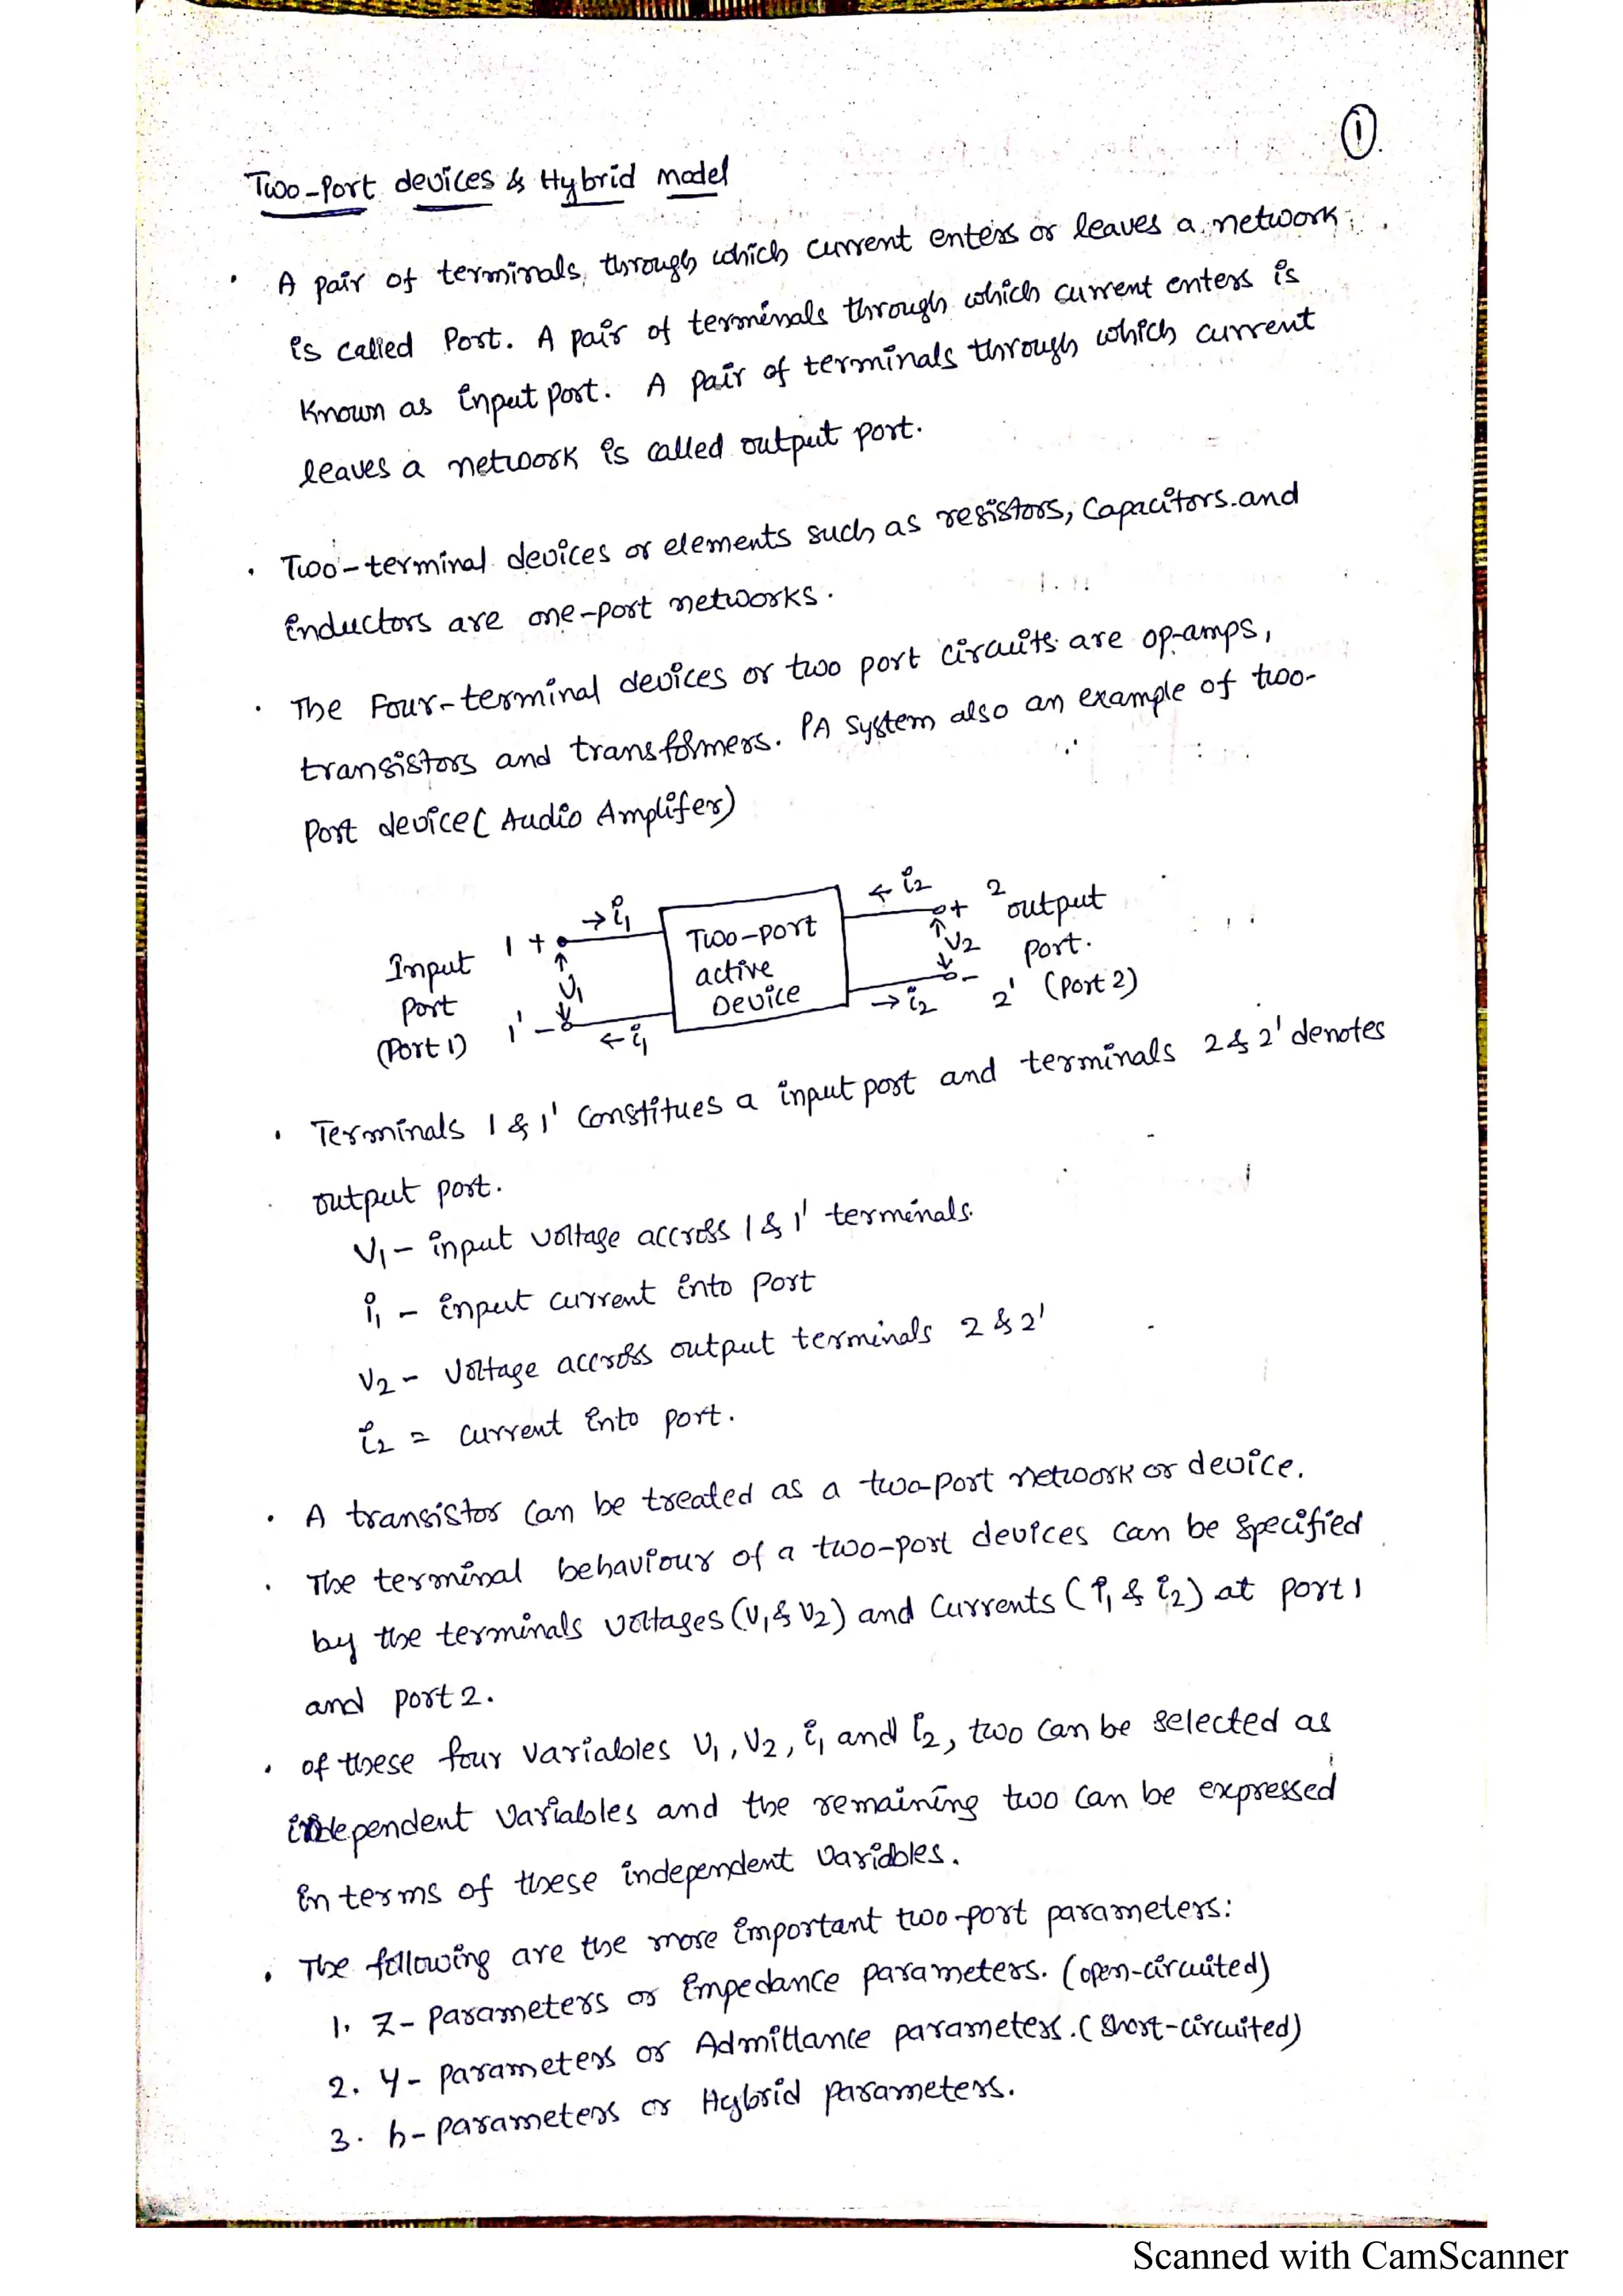 ①.
Two-Port devices & Hybrid model
• A pair of terminals, through which current enters or leaves a network
is called Port. A pair of terminals through which current enters is
Known as input port. A pair of terminals through which current
leaves a network is called output port.
• Two-terminal devices or elements such as resistors, Capacitors and
inductors are one-port networks.
• The Four-terminal devices or two port circuits are op-amps,
transistors and transformers. PA System also an example of two-
Port device ( Audio Amplifer)
→ i1
← i2
1 +
+ 2
Input
Port
(Port 1)
V1
Two-port
active
Device
V2
output
port.
(port 2)
1' -
← i1
→ i2
- 2'
• Terminals 1 & 1' Constitues a input port and terminals 2 & 2' denotes
output port.
V1 - input voltage accross 1 & 1' terminals.
i1 - input current into port
V2 - Voltage accross output terminals 2 & 2'
i2 = current into port.
• A transistor can be treated as a two-port network or device.
• The terminal behaviour of a two-port devices can be specified
by the terminals voltages (V1 & V2) and Currents ( i1 & i2) at port 1
and port 2.
• of these four variables V1, V2, i1 and i2, two can be selected as
independent variables and the remaining two can be expressed
in terms of these independent variables.
• The following are the more important two-port parameters:
1. Z- Parameters or Impedance parameters. (open-circuited)
2. Y- Parameters or Admittance parameters. ( Short-circuited)
3. h- parameters or Hybrid parameters.
Scanned with CamScanner